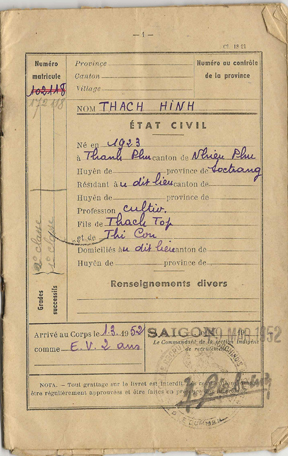 — 1 —
Numéro matricule
Province
Canton
Village
Numéro au contrôle de la province
102118
172.118
NOM THACH HINH
ÉTAT CIVIL
Né en 1923
à Thanh Phu canton de Nhiêu Phu
Huyên de province de Soctrang
Résidant à u dit lieu canton de
Huyên de province de
Profession cultiv.
Fils de Thach Top
et de Thi Cou
Domiciliés a u dit lieu canton de
Huyên de province de
Renseignements divers
Grades successifs
2e classe
1e classe
Arrivé au Corps le 1.3.1952
comme E.V. 2 ans
SAIGON 9 MAR 1952
Le Commandant de la section
de recrutement
NOTA. — Tout grattage sur le livret est interdit
être régulièrement approuvées et être faites